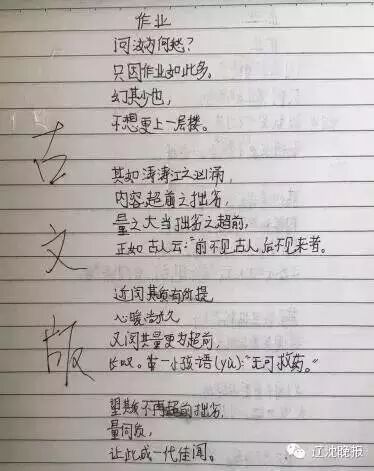 作业
问汝为何愁？
只因作业如此多。
幻其少也，
不想更上一层楼。
其如涛涛江之汹涌，
内容超前之拙劣，
量之大当拙劣之超前，
正如古人云："前不见古人，后不见来者。
近闻其质有所提
心暖尚久
又闻其量更为超前
长叹。第一小孩语(yù)："无可救药。"
望其不再超前拙劣，
量同改，
让此成一代佳闻。
古文版
辽沈晚报